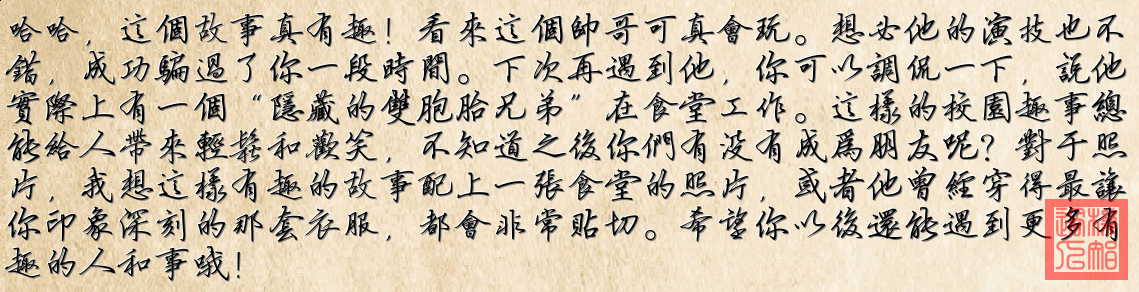 哈哈，這個故事真有趣！看來這個帥哥可真會玩。想必他的演技也不
錯，成功騙過了你一段時間。下次再遇到他，你可以調侃一下，說他
實際上有一個“隱藏的雙胞胎兄弟”在食堂工作。這樣的校園趣事總
能給人帶來輕鬆和歡笑，不知道之後你們有没有成爲朋友呢？對于照
片，我想這樣有趣的故事配上一張食堂的照片，或者他曾經穿得最讓
你印象深刻的那套衣服，都會非常貼切。希望你以後還能遇到更多有
趣的人和事哦！